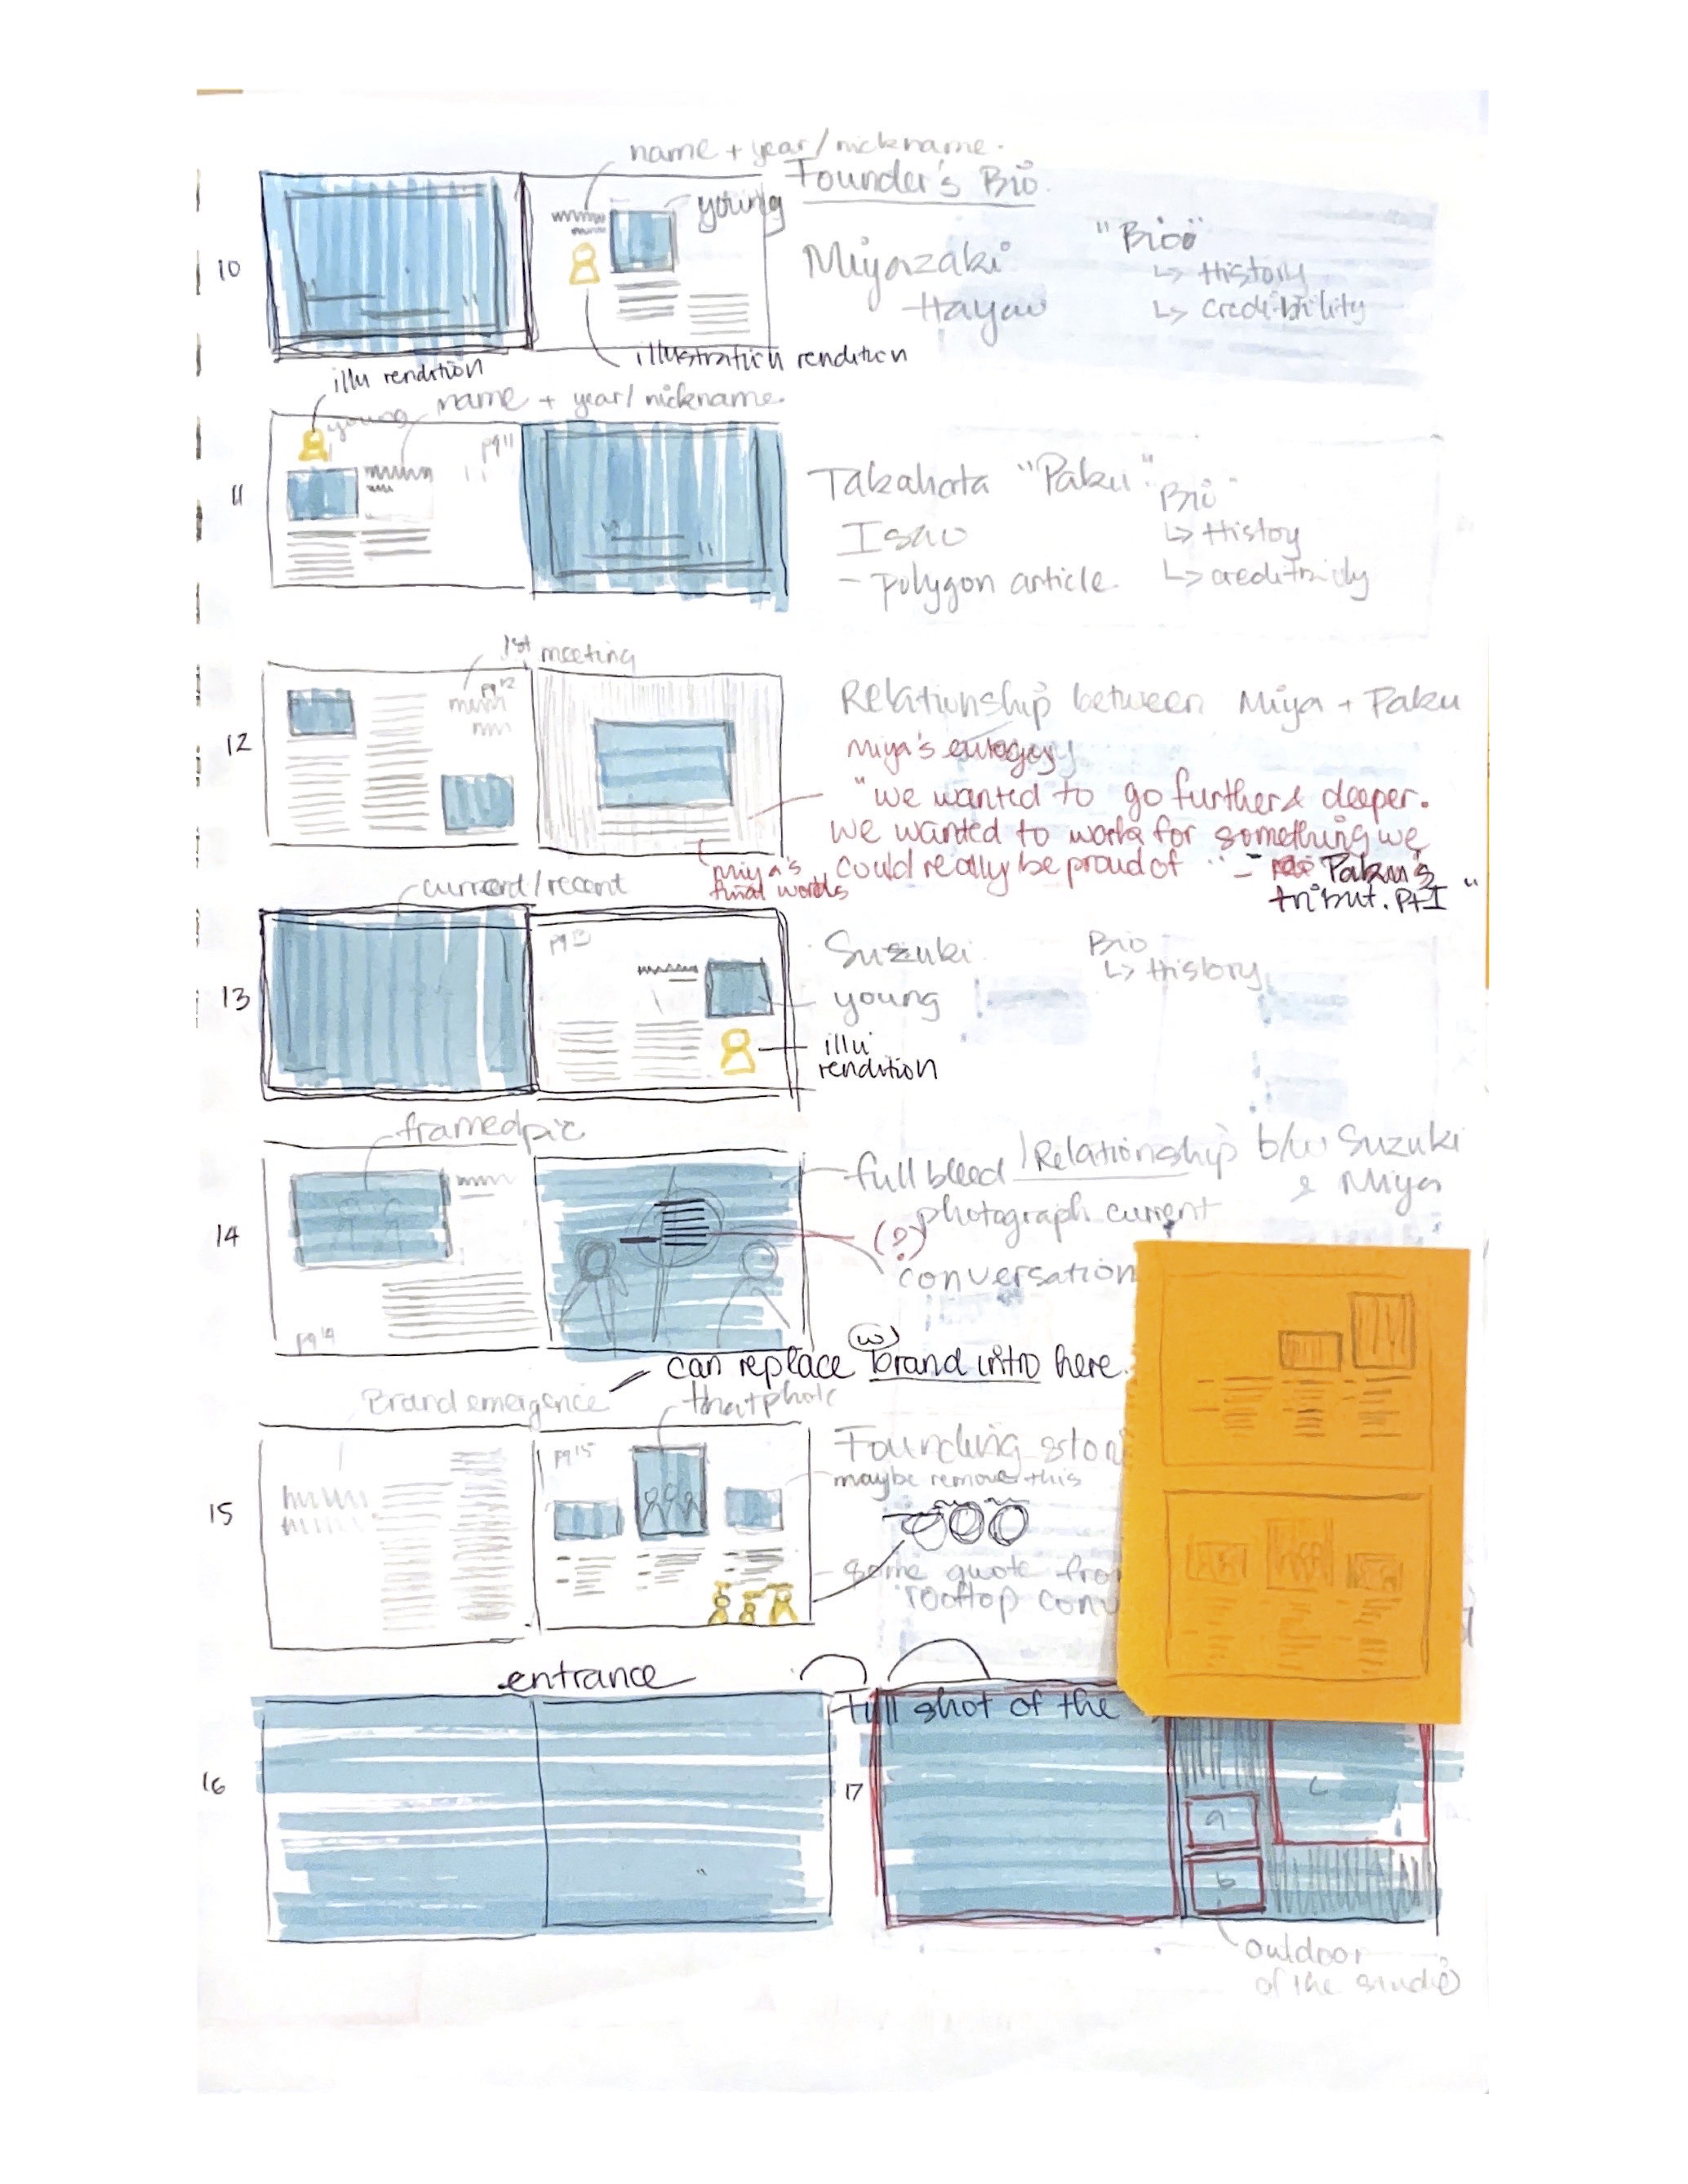 name + year/nickname.
Founder's Bio
young
10
Miyazaki
Hayao
"Bio"
↳ History
↳ credibility
illustration rendition
illu rendition
young
name + year/nickname.
pg 11
11
Takahata "Paku"
Isao
- polygon article.
"Bio"
↳ History
↳ credibility
1st meeting
pg 12
12
Relationship between Miya + Paku
Miya's eulogy
"we wanted to go further & deeper.
we wanted to work for something we
could really be proud of" - Paku's
tribut. Pt I"
Miya's
final words
current/recent
pg 13
13
Suzuki
young
Bio
↳ History
illu
rendition
framed pic
14
pg 14
full bleed / Relationship b/w Suzuki
& Miya
photograph current
(?)
conversation
can replace (w) brand intro here.
Brand emergence
that photo
pg 15
15
Founding stori
maybe remove this
some quote fro
rooftop conv
entrance
full shot of the
16
17
a
b
c
outdoor
of the studio